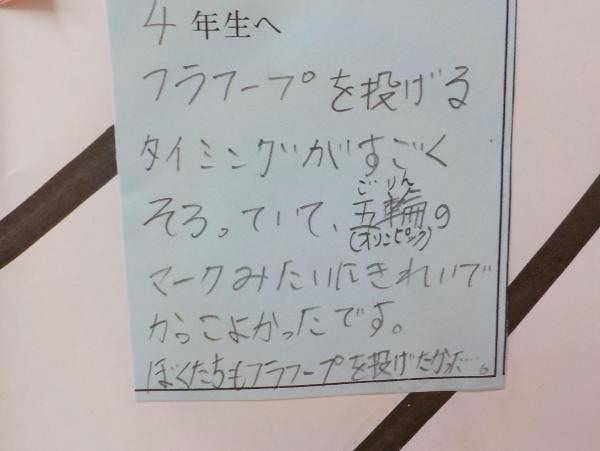 4年生へ
フラフープを投げる
タイミングがすごく
ごりん
そろっていて、五輪の
(オリンピック)
マークみたいにきれいで
かっこよかったです。
ぼくたちもフラフープを投げたかった…。